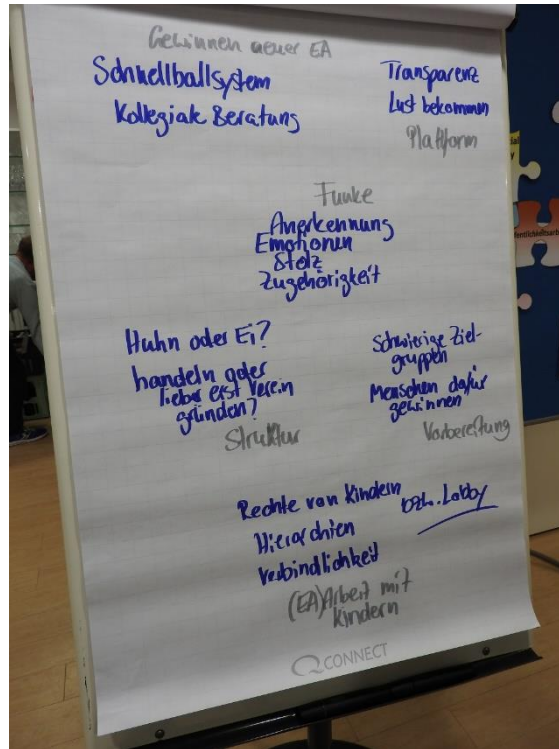 Gewinnen neuer EA
Schnellballsystem
Kollegiale Beratung
Transparenz
Lust bekommen
Plattform
Funke
Anerkennung
Emotionen
Stolz
Zugehörigkeit
Huhn oder Ei?
handeln oder
lieber erst Verein
gründen?
Struktur
Schwierige Ziel-
gruppen
Menschen dafür
gewinnen
Vorbereitung
Rechte von Kindern
bzw. Lobby
Hierarchien
Verbindlichkeit
(EA)Arbeit mit
Kindern
CONNECT